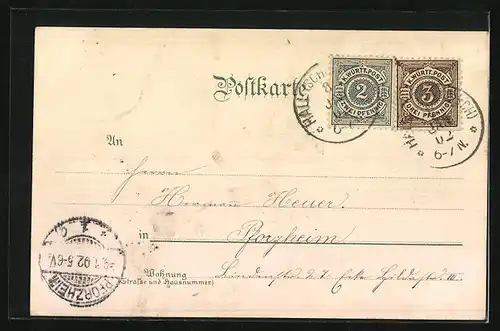 Postkarte
K. WÜRTT. POST
2
ZWEI PFENNIG
K. WÜRTT. POST
3
DREI PFENNIG
HALL (SCH
6-7 N.
An
Herrn
Hermann Heuer
in Pforzheim
Wohnung
(Strasse und Hausnummer)
27 Ecke III
PFORZHEIM
1.02.5-6V.